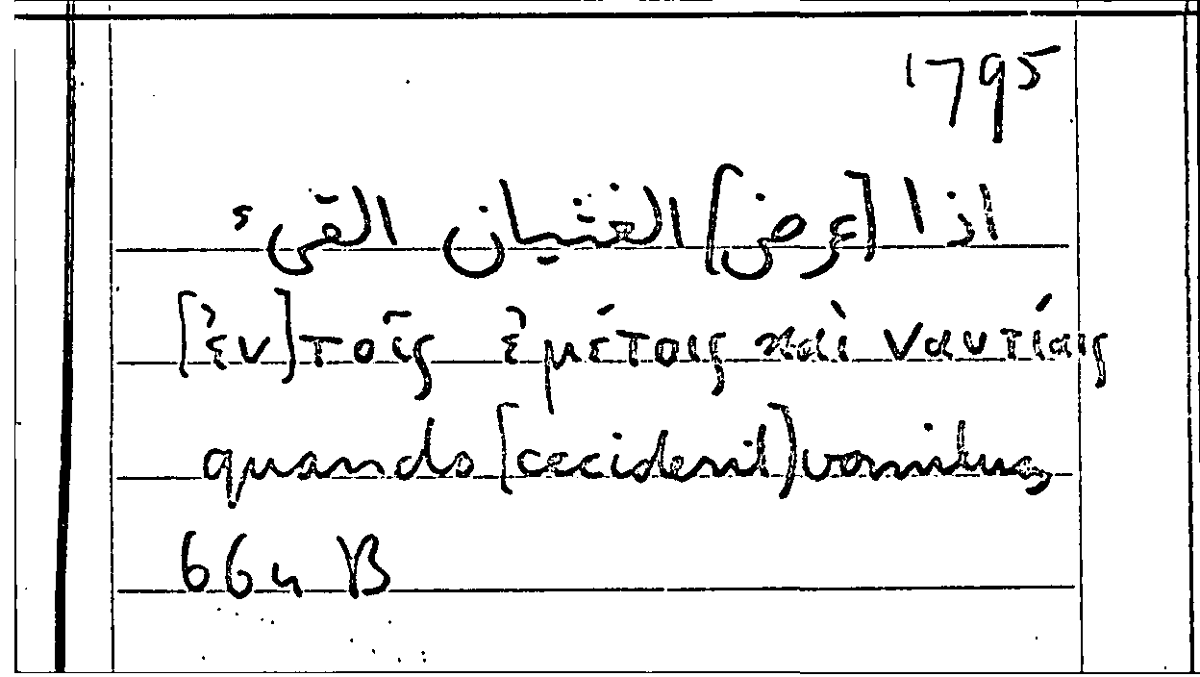 1795
اذا [عرض] الغثيان القىء
[ἐν] τοῖς ἐμέτοις καὶ ναυτίαις
quando [ceciderit] vomitus
664 B